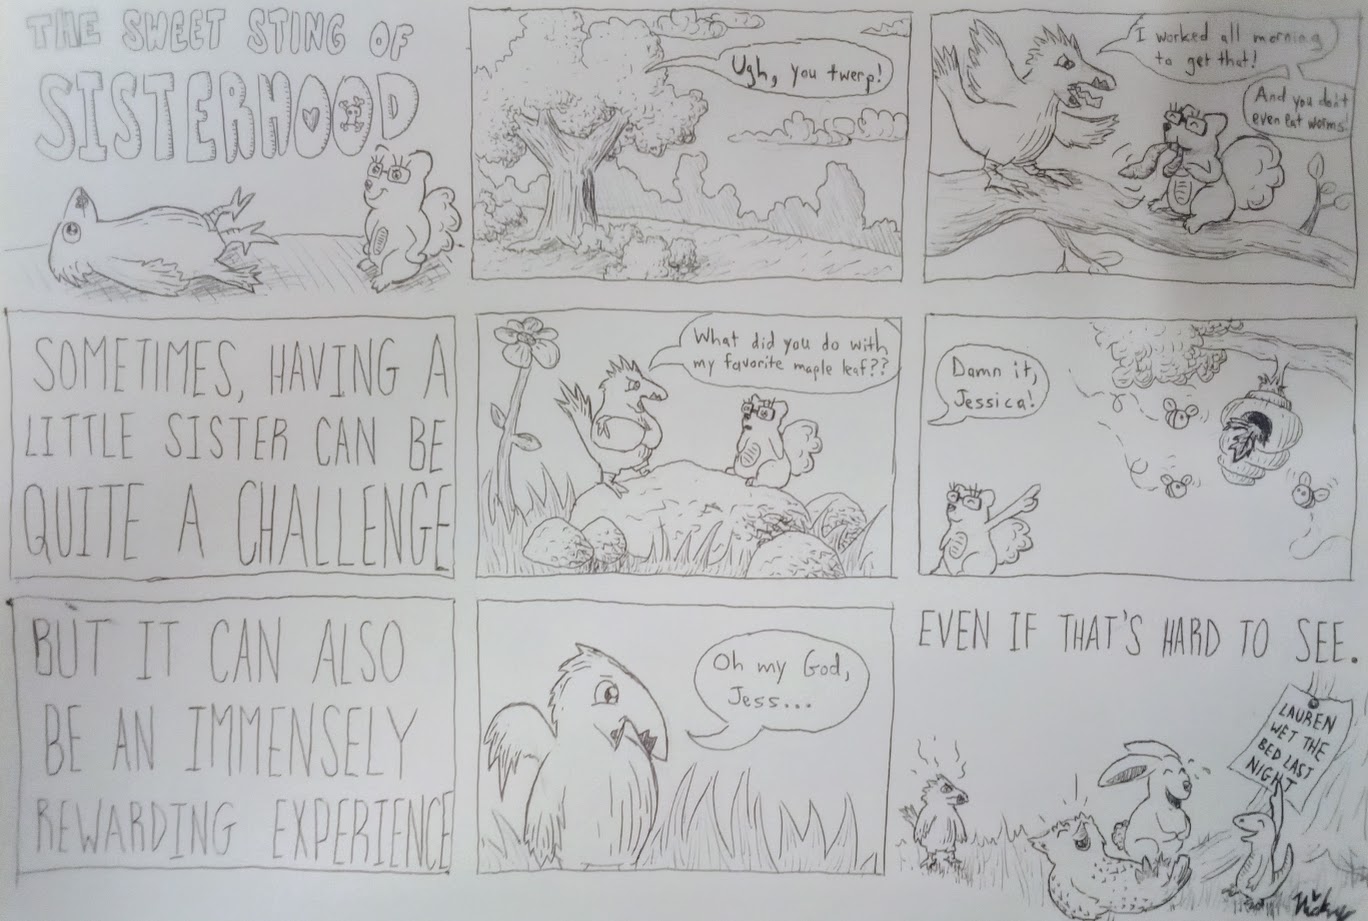 THE SWEET STING OF
SISTERHOOD
Ugh, you twerp!
I worked all morning
to get that!
And you don't
even eat worms!
SOMETIMES, HAVING A
LITTLE SISTER CAN BE
QUITE A CHALLENGE
What did you do with
my favorite maple leaf??
Damn it,
Jessica!
BUT IT CAN ALSO
BE AN IMMENSELY
REWARDING EXPERIENCE
Oh my God,
Jess...
EVEN IF THAT'S HARD TO SEE.
LAUREN
WET THE
BED LAST
NIGHT